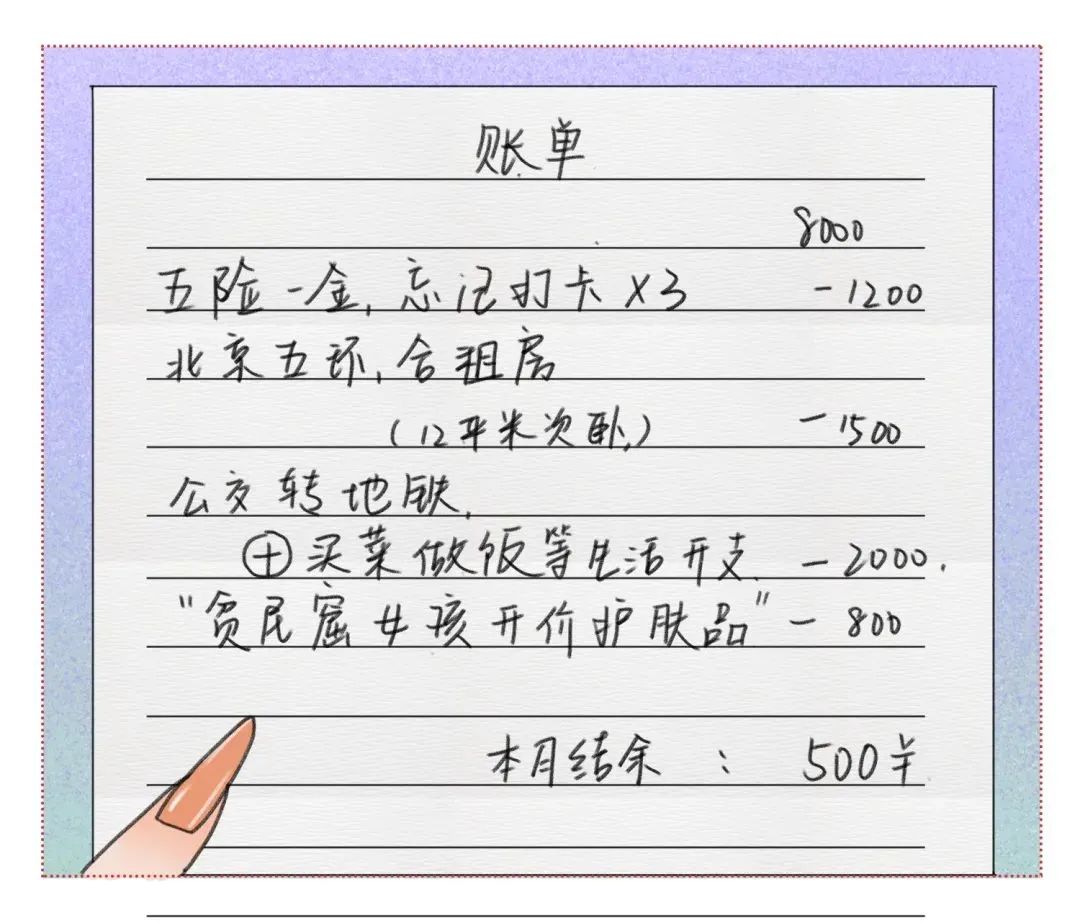 账单
8000
五险一金,忘记打卡×3 -1200
北京五环,合租房
(12平米次卧) -1500
公交转地铁,
⊕买菜做饭等生活开支 -2000.
"贫民窟女孩开价护肤品" -800
本月结余 : 500半